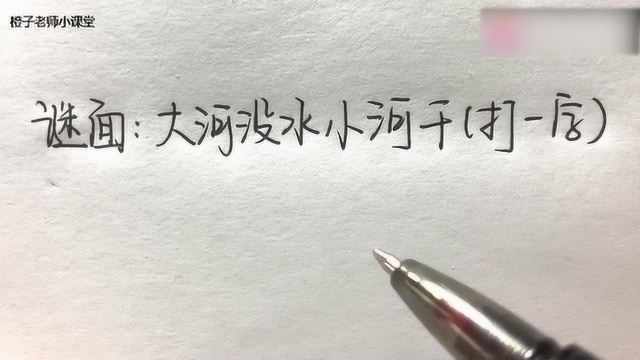 橙子老师小课堂
谜面:大河没水小河干(打一字)